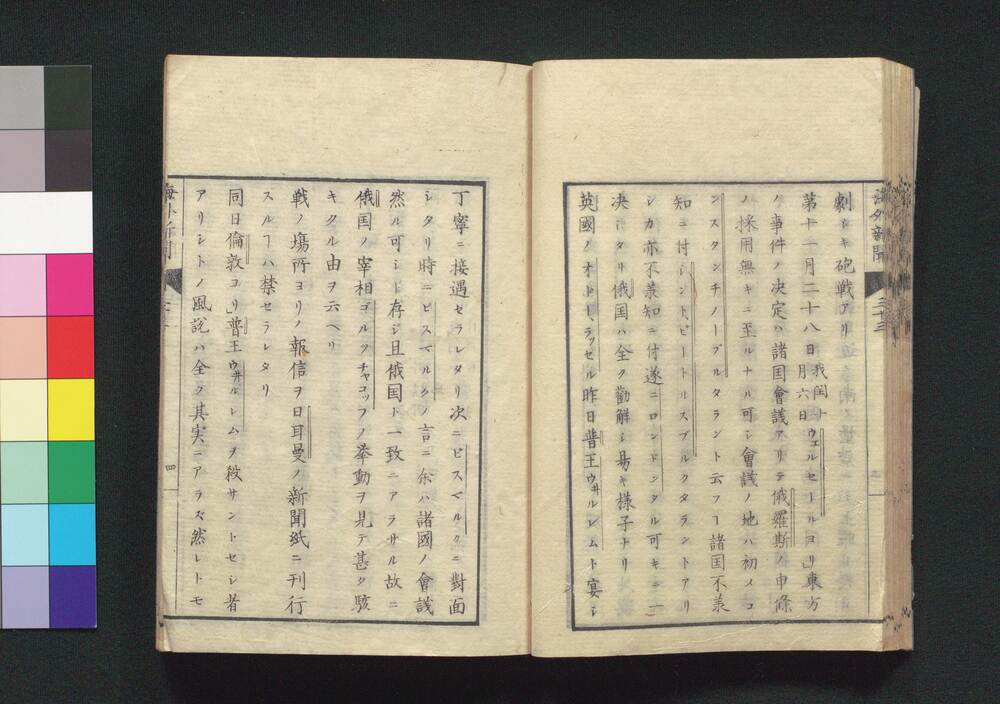 海外新聞 三十三
劇シキ砲戦アリ
第十一月二十八日我閏十月六日ウエルセールヨリ」東方
ノ事件ノ決定ハ諸国會議アリテ俄羅斯ノ申條
ノ採用無キニ至ルナル可シ會議ノ地ハ初メコ
ンスタンチノープルタラント云フヿ諸国不羕
知ニ付シントピートルスブルクタラントアリ
シカ亦不羕知ニ付遂ニロンドンタル可キニ一
決シタリ俄国ハ全ク勸解シ易キ様子ナリ
英國ノオドー、ラッセル昨日普王ウヰルレムト宴シ
丁寧ニ接遇セラレタリ次ニビスマルクニ對面
シタリ時ニビスマルクノ言ニ余ハ諸國ノ會議
然ル可シト存シ且俄国ト一致ニアラサル故ニ
俄国ノ宰相ゴルツチャコッフノ挙動ヲ見テ甚タ駭
キタル由ヲ云ヘリ
戦ノ場所ヨリノ報信ヲ日耳曼ノ新聞紙ニ刊行
スルヿハ禁セラレタリ
同日倫敦ヨリ」普王ウヰルレムヲ殺サントセシ者
アリシトノ風説ハ全ク其実ニアラス然レトモ
海外新聞
四